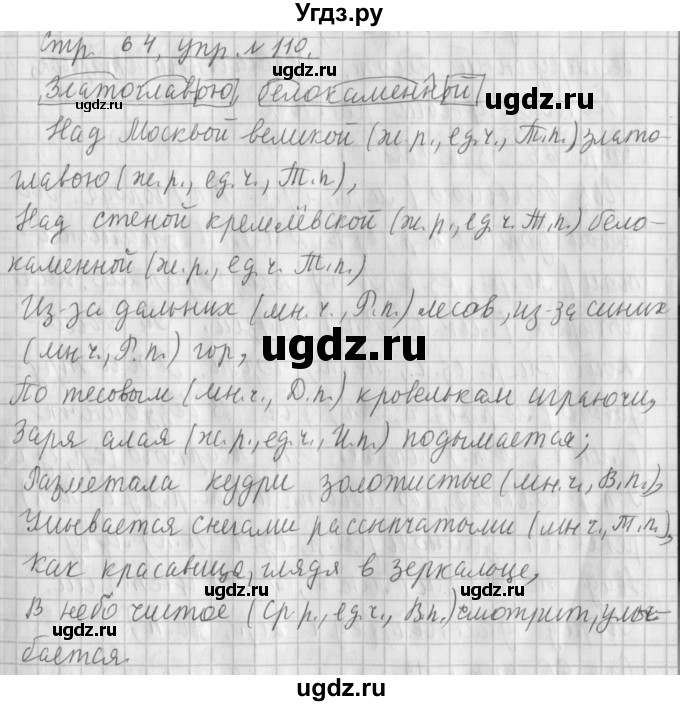 Угдз.ру
Стр. 64, упр. № 110.
ugdz.ru
Златоглавою, белокаменный
ugdz.ru ugdz.ru
Над Москвой великой (ж.р., ед.ч., Т.п.) злато-
главою (ж.р., ед.ч., Т.п.),
ugdz.ru
Над стеной кремлёвской (ж.р., ед.ч. Т.п.) бело-
ugdz.ru
каменной (ж.р., ед.ч. Т.п.)
Из-за дальних (мн.ч., Р.п.) лесов, из-за синих
ugdz.ru
(мн.ч., Р.п.) гор,
ugdz.ru
По тесовым (мн.ч., Д.п.) кровелькам играючи,
Заря алая (ж.р., ед.ч., И.п.) подымается;
ugdz.ru
Разметала кудри золотистые (мн.ч., В.п.),
Умывается снегами рассыпчатыми (мн.ч., Т.п.),
Как красавица, глядя в зеркальце,
ugdz.ru
В небо чистое (ср.р., ед.ч., В.п.) смотрит, улы-
ugdz.ru ugdz.ru
бается.
ugdz.ru